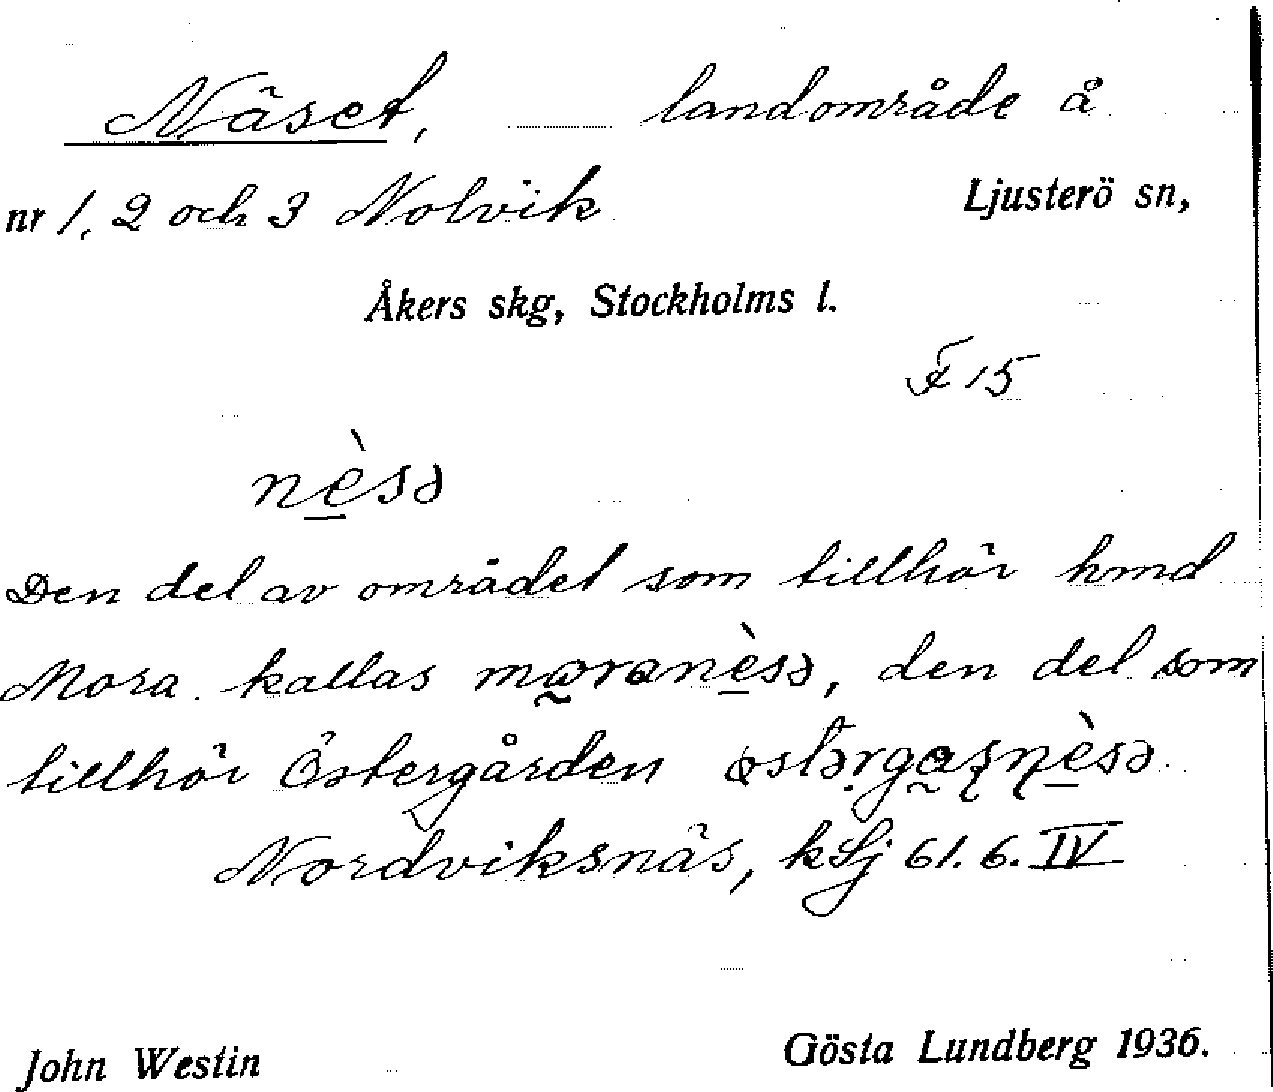 Näset, landområde å
nr 1, 2 och 3 Nolvik Ljusterö sn,
Åkers skg, Stockholms l.
F 15
nèsə
Den del av området som tillhör hmd
Mora kallas mɷranèsə, den del som
tillhör Östergården
Nordviksnäs, k Lj 61. 6. IV
John Westin Gösta Lundberg 1936.